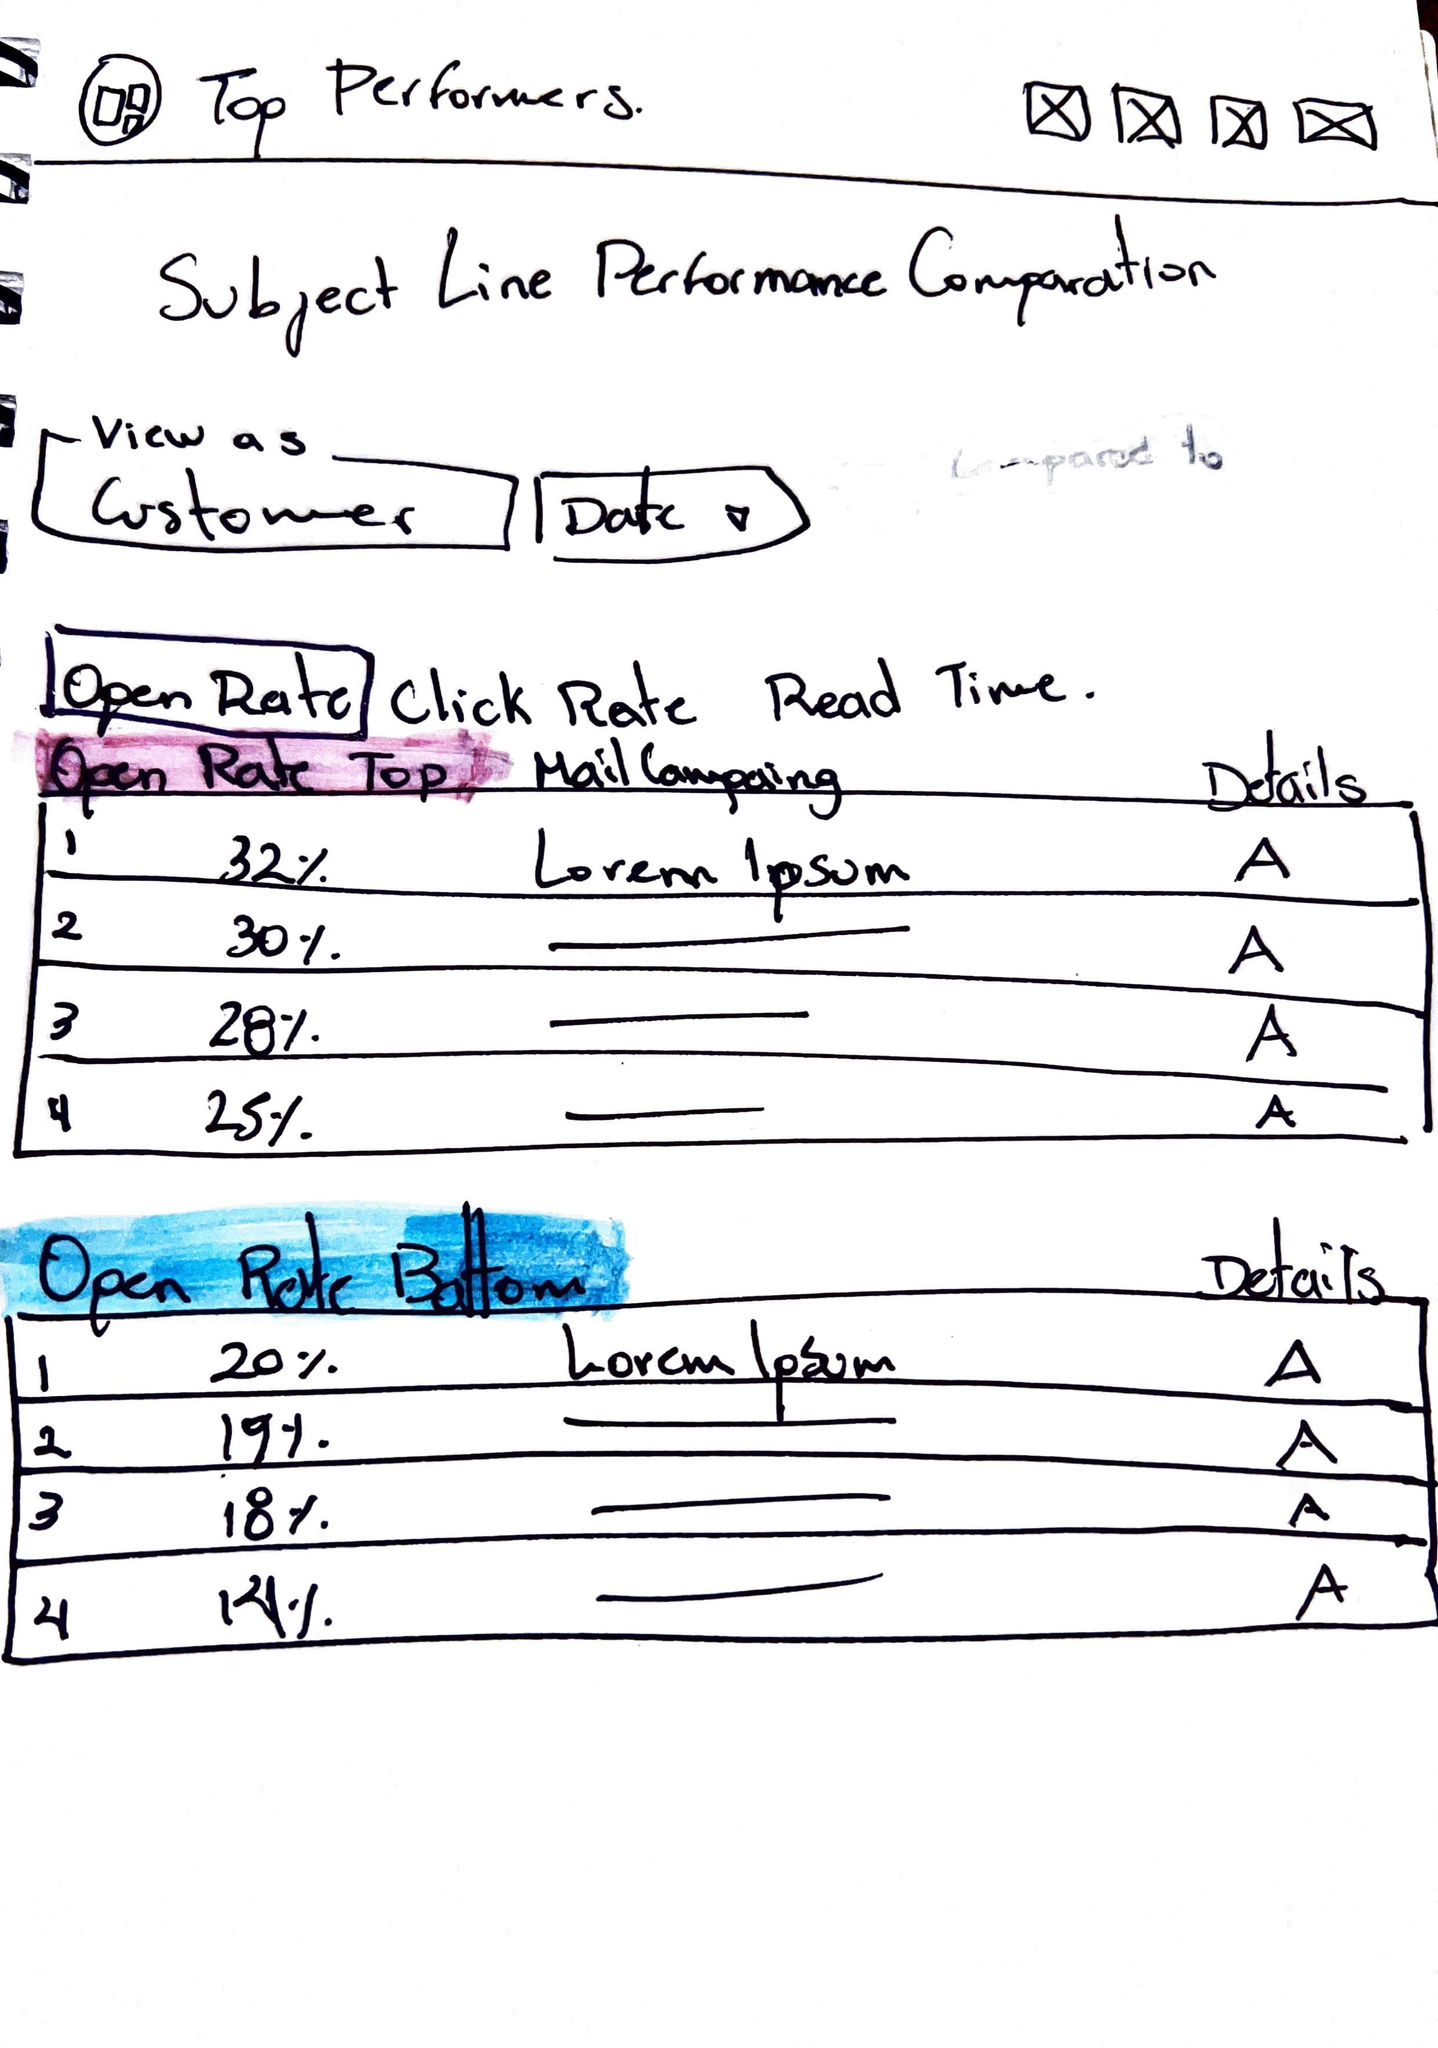 Top Performers.
Subject Line Performance Comparation
View as
Customer
Date
Compared to
Open Rate Click Rate Read Time.
Open Rate Top Mail Compaing Details
1 32% Lorem Ipsum A
2 30% A
3 28% A
4 25% A
Open Rate Bottom Details
1 20% Lorem Ipsum A
2 19% A
3 18% A
4 14% A